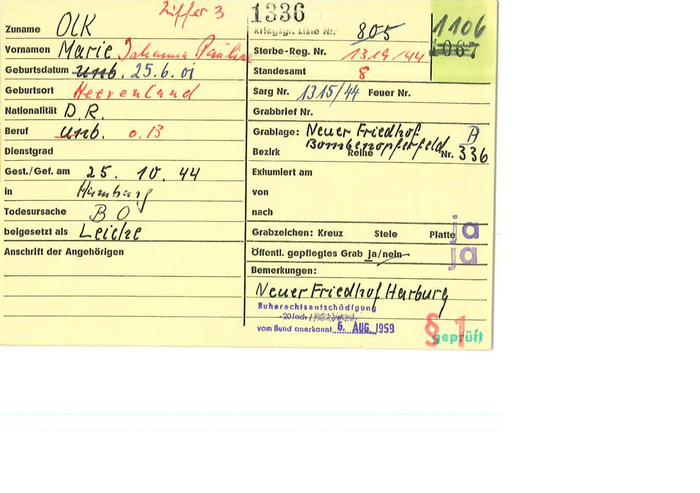 Ziffer 3
Zuname OLK
Vornamen Marie Johanna Pauline
Geburtsdatum unb. 25.6.01
Geburtsort Heerenland
Nationalität D.R.
Beruf unb. o.B
Dienstgrad
Gest./Gef. am 25. 10. 44
in Hamburg
Todesursache BO
beigesetzt als Leiche
Anschrift der Angehörigen
1336
Kriegsgr. Liste Nr. 805
1106
1067
Sterbe-Reg. Nr. 1319/44
Standesamt 8
Sarg Nr. 1315/44 Feuer Nr.
Grabbrief Nr.
Grablage: Neuer Friedhof
Bombenopferfeld
Bezirk Reihe Nr. 336
Exhumiert am
von
nach
Grabzeichen: Kreuz Stele Platte ja
Öffentl. gepflegtes Grab ja/nein ja
Bemerkungen:
Neuer Friedhof Harburg
Ruherechtsentschädigung
vom Bund anerkannt 6. AUG. 1959
§ 1
geprüft